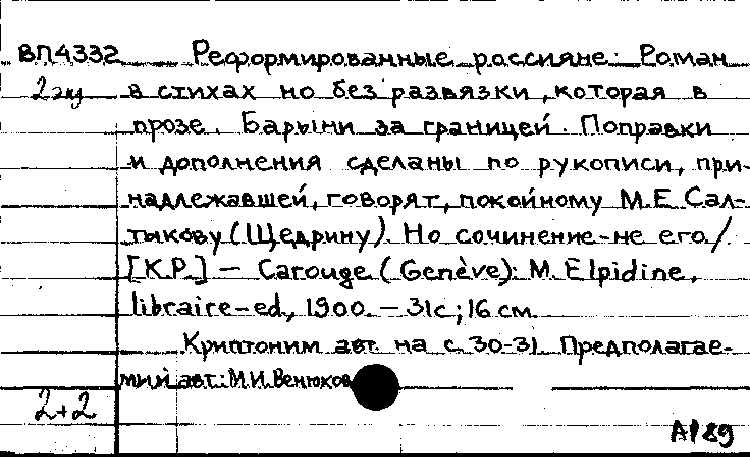 ВП4332 Реформированные россияне: Роман
2 экз в стихах но без развязки, которая в
прозе. Барыни за границей. Поправки
и дополнения сделаны по рукописи, при-
надлежавшей, говорят, покойному М.Е. Сал-
тыкову (Щедрину). Но сочинение-не его. /
[К.Р.] – Carouge (Genève): M. Elpidine,
libraire-ed, 1900. – 31с; 16 см.
Криптоним авт. на с. 30-31. Предполагае-
мый авт.: М.И. Венюков
2+2
АР89